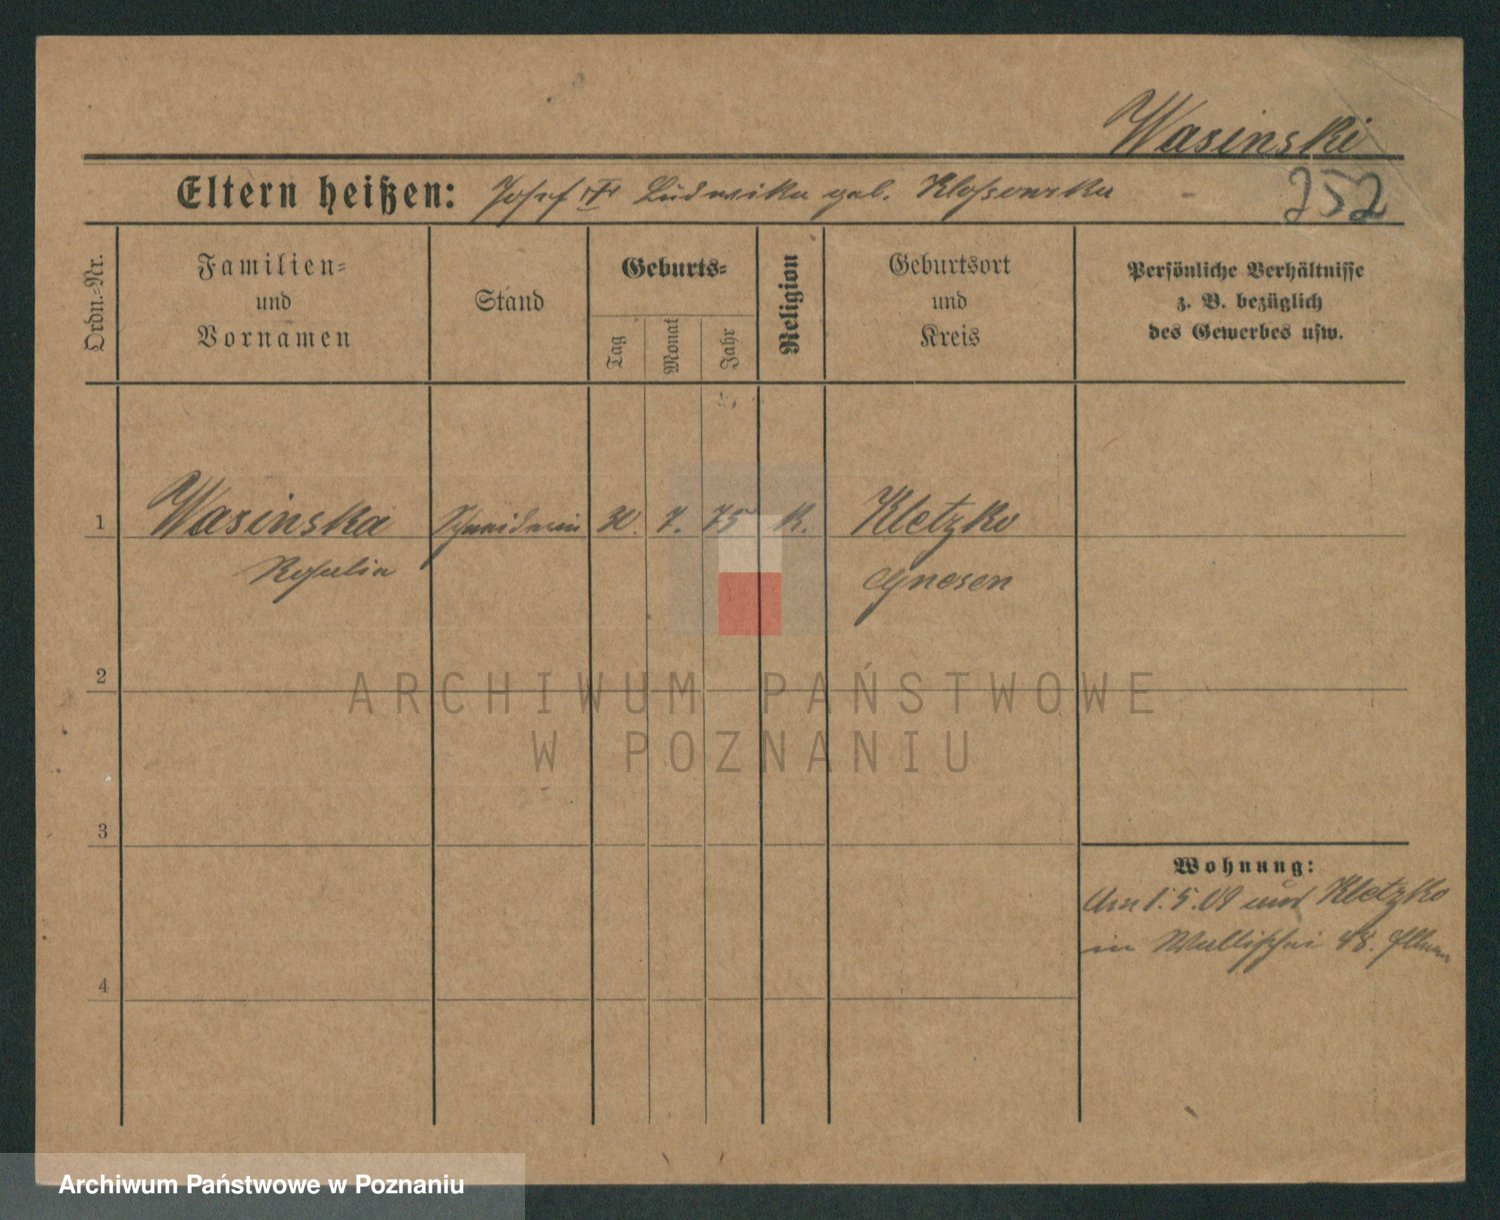 Wasinski
252
Eltern heißen: Josef ## Ludwika geb. Kloßowska
Ordn.-Nr.
Familien-
und
Vornamen
Stand
Geburts-
Tag
Monat
Jahr
Religion
Geburtsort
und
Kreis
Persönliche Verhältnisse
z. B. bezüglich
des Gewerbes usw.
1 Wasinska Schneiderin 30. 7. 75 K. Kletzko
Rosalia Gnesen
2
ARCHIWUM PAŃSTWOWE
W POZNANIU
3
Wohnung:
Am 1.5.09 aus Kletzko
in Wallischei 48.
4
Archiwum Państwowe w Poznaniu